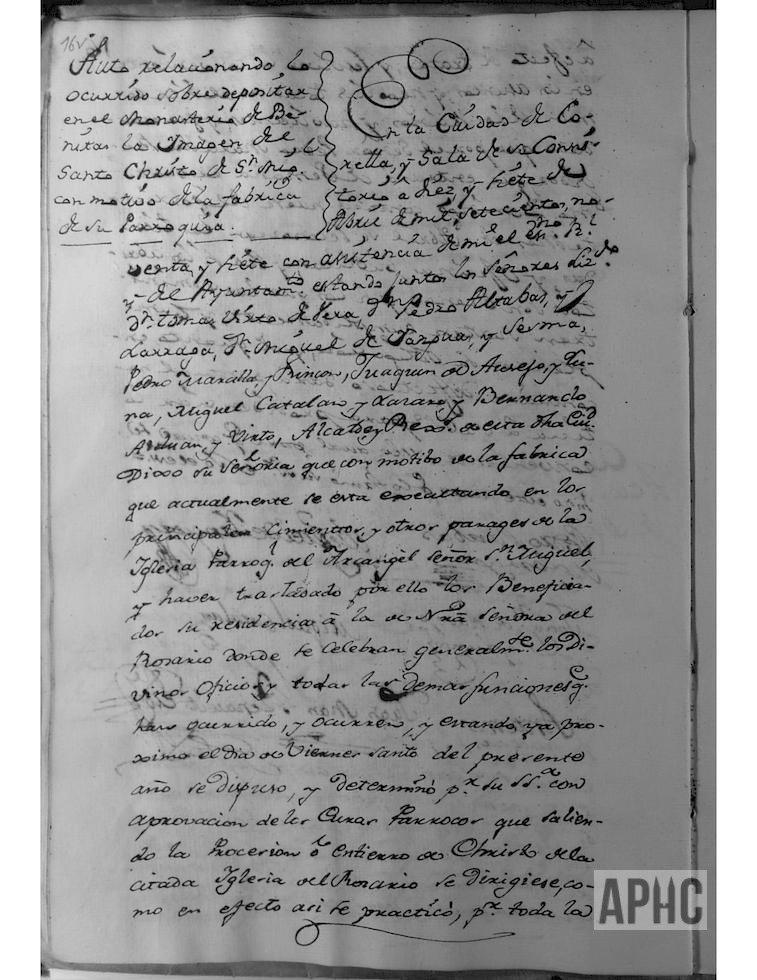 16v
Auto relacionando lo
ocurrido sobre depositar
en el Monasterio de Be-
nitas la Imagen del
Santo Christo de Sn. Mig.l
con motivo de la fabrica
de su Parroquia.
En la Ciudad de Co-
rella, y Sala de su Consis-
torio a diez, y siete de
Abril de mil setecientos, no-
venta, y siete con asistencia de mi el esno. Rl.
y del Ayuntamto. estando juntos los señores Lizdo.
Dn. Tomas Virto de Vera, Dn. Pedro Altabas, y
Larraga, Dn. Miguel de Sarpua, y Sesma,
Pedro Marcilla, y Rincon, Juaquin de Ausejo, y Lu-
na, Miguel Catalan, y Lazaro, y Bernardo
y Virto, Alcalde, y Rexs. de esta dha Ciud.
Dixo su señoria que con motibo de la fabrica
que actualmente se esta executando en los
principales Cimientos, y otros parages de la
Iglesia Parroql. del Arcangel señor Sn. Miguel,
y haver trasladado por ello los Beneficia-
dos su residencia à la de Nrã señora del
Rosario donde se Celebran generalmte. los Di-
vinos Oficios, y todas las demas funciones q.e
han ocurrido, y ocurren, y estando ya pro-
ximo el dia de Viernes santo del presente
año se dispuso, y determinó pr. su SSa. con
aprovacion de los Curas Parrocos que salien-
do la Procesion ô entierro de Christo de la
citada Iglesia del Rosario se dirigiese, co-
mo en efecto asi se practicó, pr. toda la
APHC